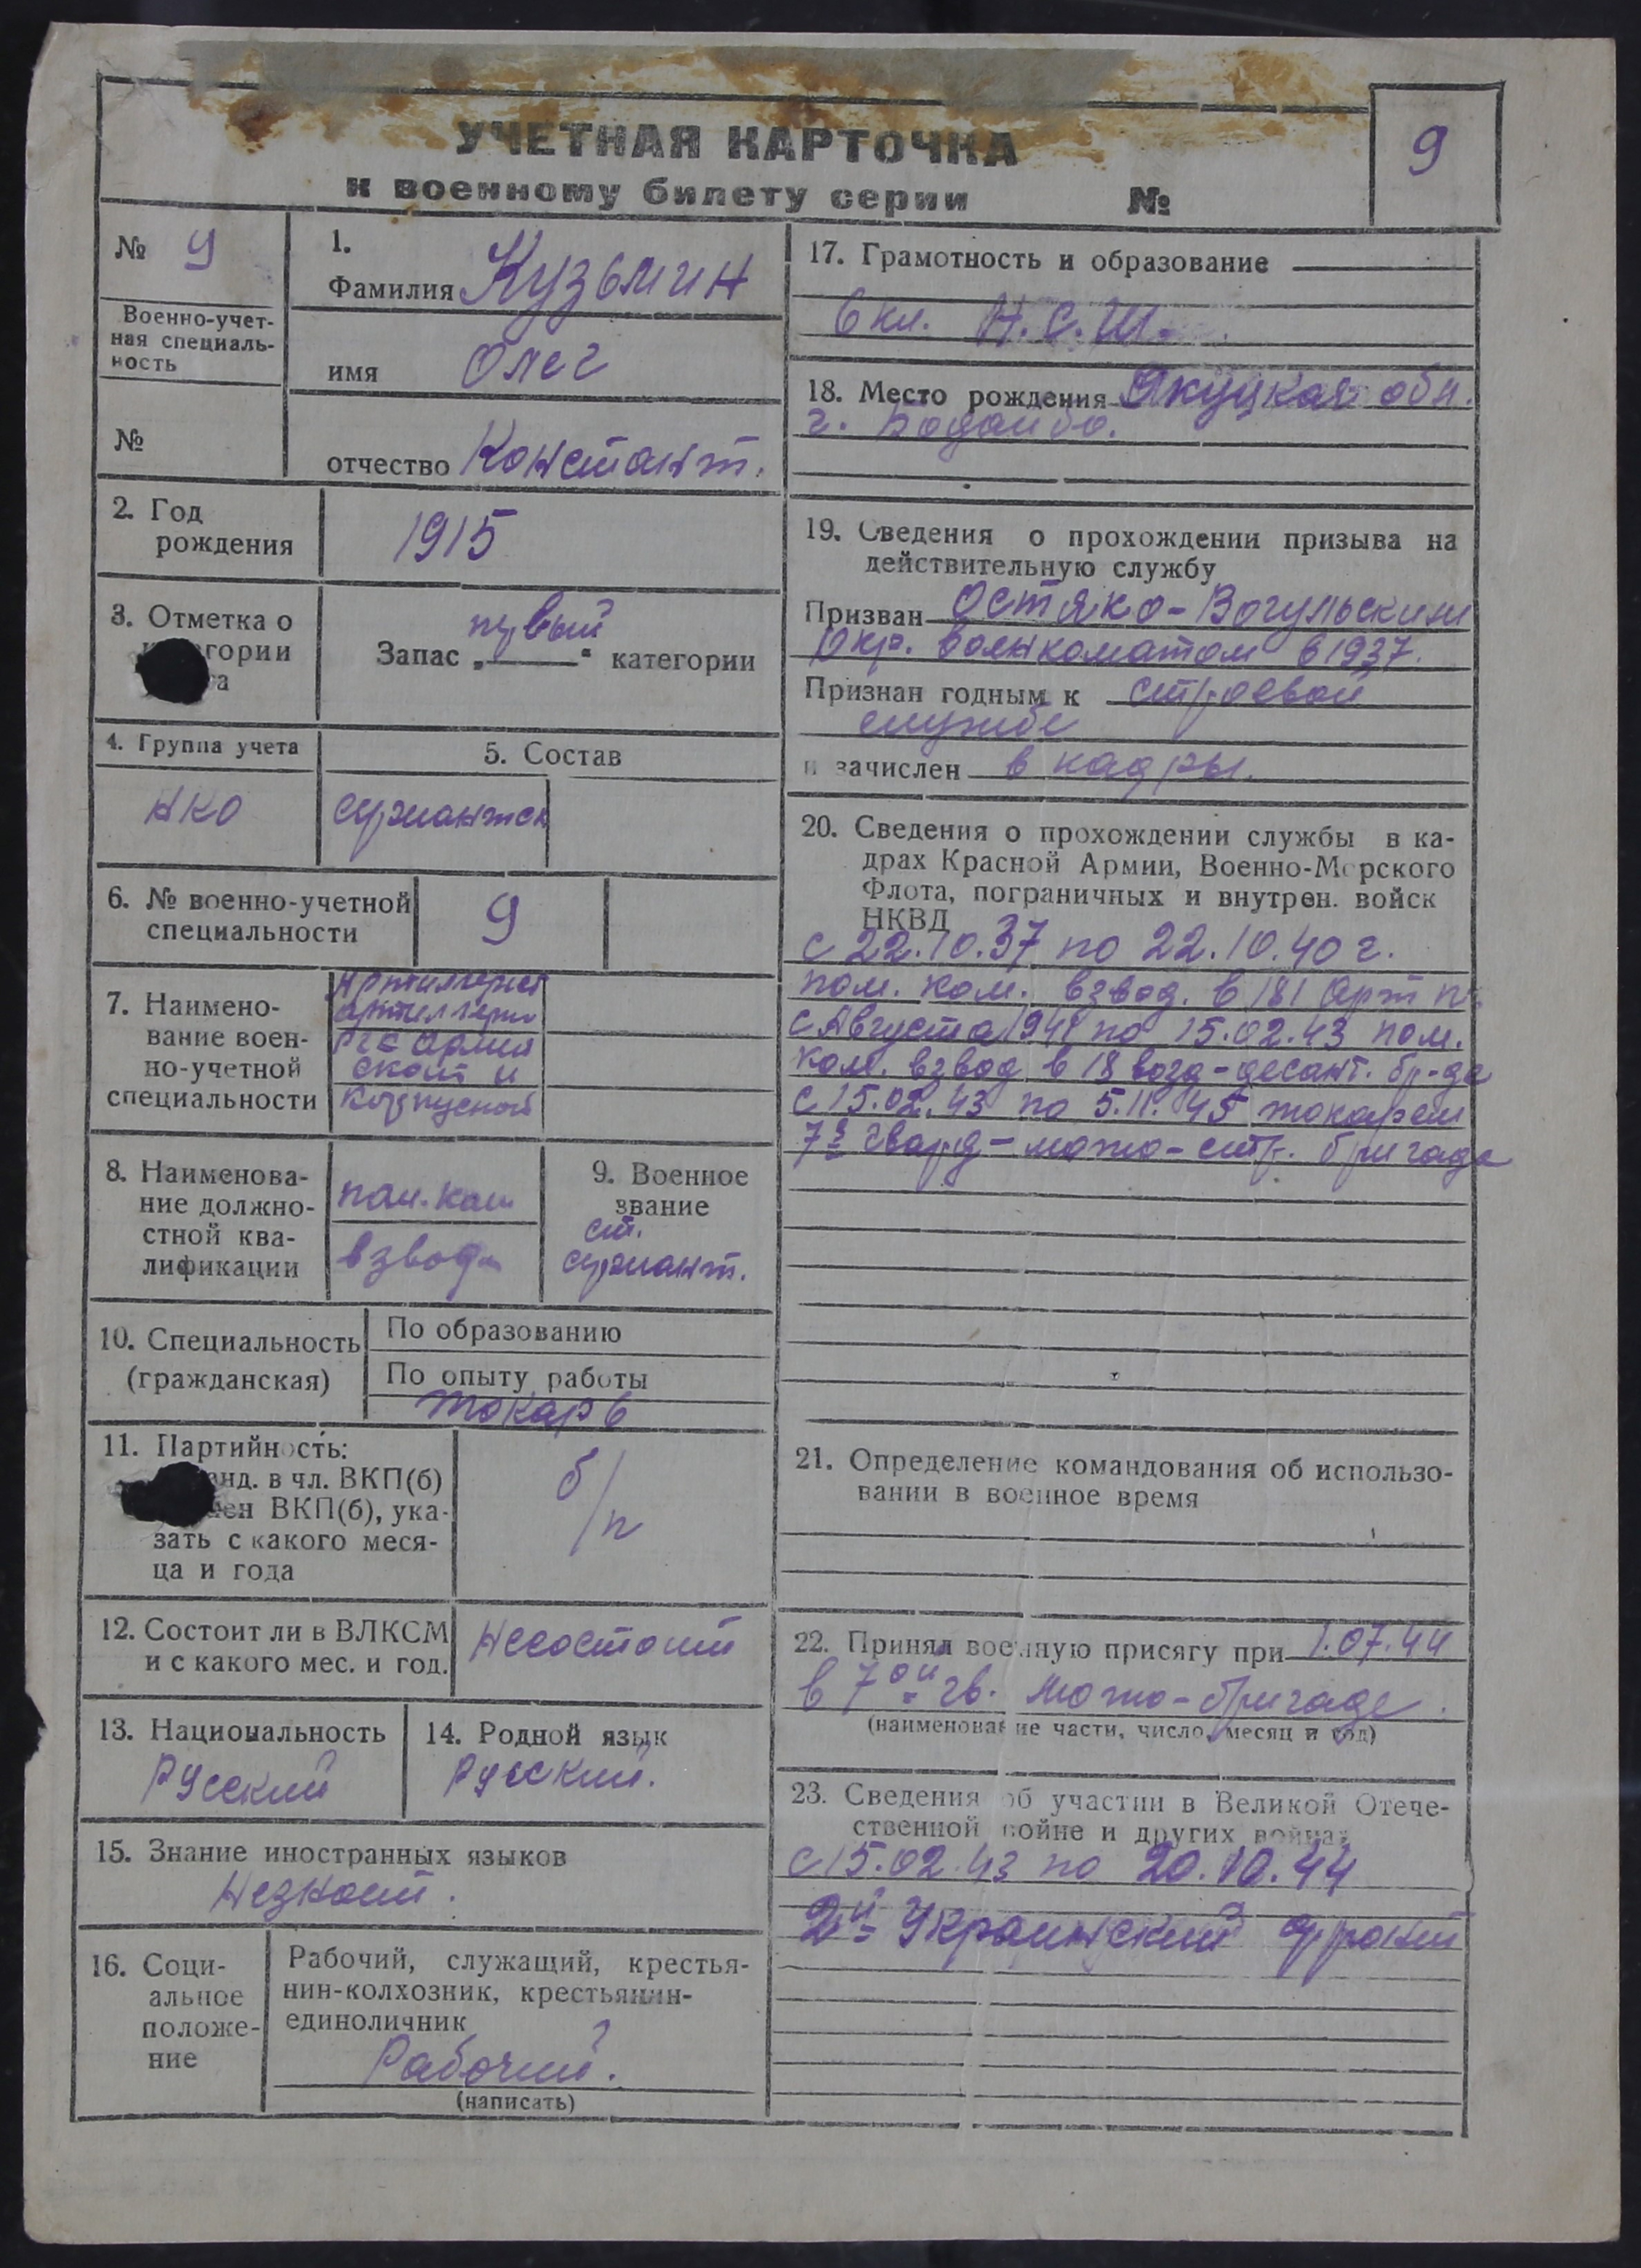 УЧЕТНАЯ КАРТОЧКА
к военному билету серии №
9
№ 9
Военно-учет-
ная специаль-
ность
№
1.
Фамилия Кузьмин
имя Олег
отчество Константт.
2. Год
рождения
1915
3. Отметка о
гории
а
первый
Запас „ “ категории
4. Группа учета
НКО
5. Состав
сержантск
6. № военно-учетной
специальности
9
7. Наимено-
вание воен-
но-учетной
специальности
Артиллерия
артиллери
армей
ской и
корпусной
8. Наименова-
ние должно-
стной ква-
лификации
пом. ком
взвода
9. Военное
звание
ст.
сержант.
10. Специальность
(гражданская)
По образованию
По опыту работы
токарь
11. Партийность:
анд. в чл. ВКП(б)
лен ВКП(б), ука-
зать с какого меся-
ца и года
б/п
12. Состоит ли в ВЛКСМ
и с какого мес. и год.
Несостоит
13. Национальность
Русский
14. Родной язык
Русский.
15. Знание иностранных языков
Незнает.
16. Соци-
альное
положе-
ние
Рабочий, служащий, крестья-
нин-колхозник, крестьянин-
единоличник
Рабочий.
(написать)
17. Грамотность и образование
6 кл. Н.С.Ш.
18. Место рождения Якуцкая обл.
г. Бодайбо.
19. Сведения о прохождении призыва на
действительную службу
Призван Остяко-Вогульским
Окр. военкоматом в 1937.
Признан годным к строевой
службе
и зачислен в кадры.
20. Сведения о прохождении службы в ка-
драх Красной Армии, Военно-Морского
Флота, пограничных и внутрен. войск
НКВД
с 22.10.37 по 22.10.40 г.
пом. ком. взвод. в 181 Арт п.
с Августа 1941 по 15.02.43 пом.
ком. взвод в 18 возд-десант. бр-де
с 15.02.43 по 5.11.45 токарем
7й Гвард-мото-стр. бригаде
21. Определение командования об использо-
вании в военное время
22. Принял военную присягу при 1.07.44
в 7ой гв. мото-бригаде.
(наименование части, число, месяц и год)
23. Сведения об участии в Великой Отече-
ственной войне и других войнах
с 15.02.43 по 20.10.44
2й Украинский фронт